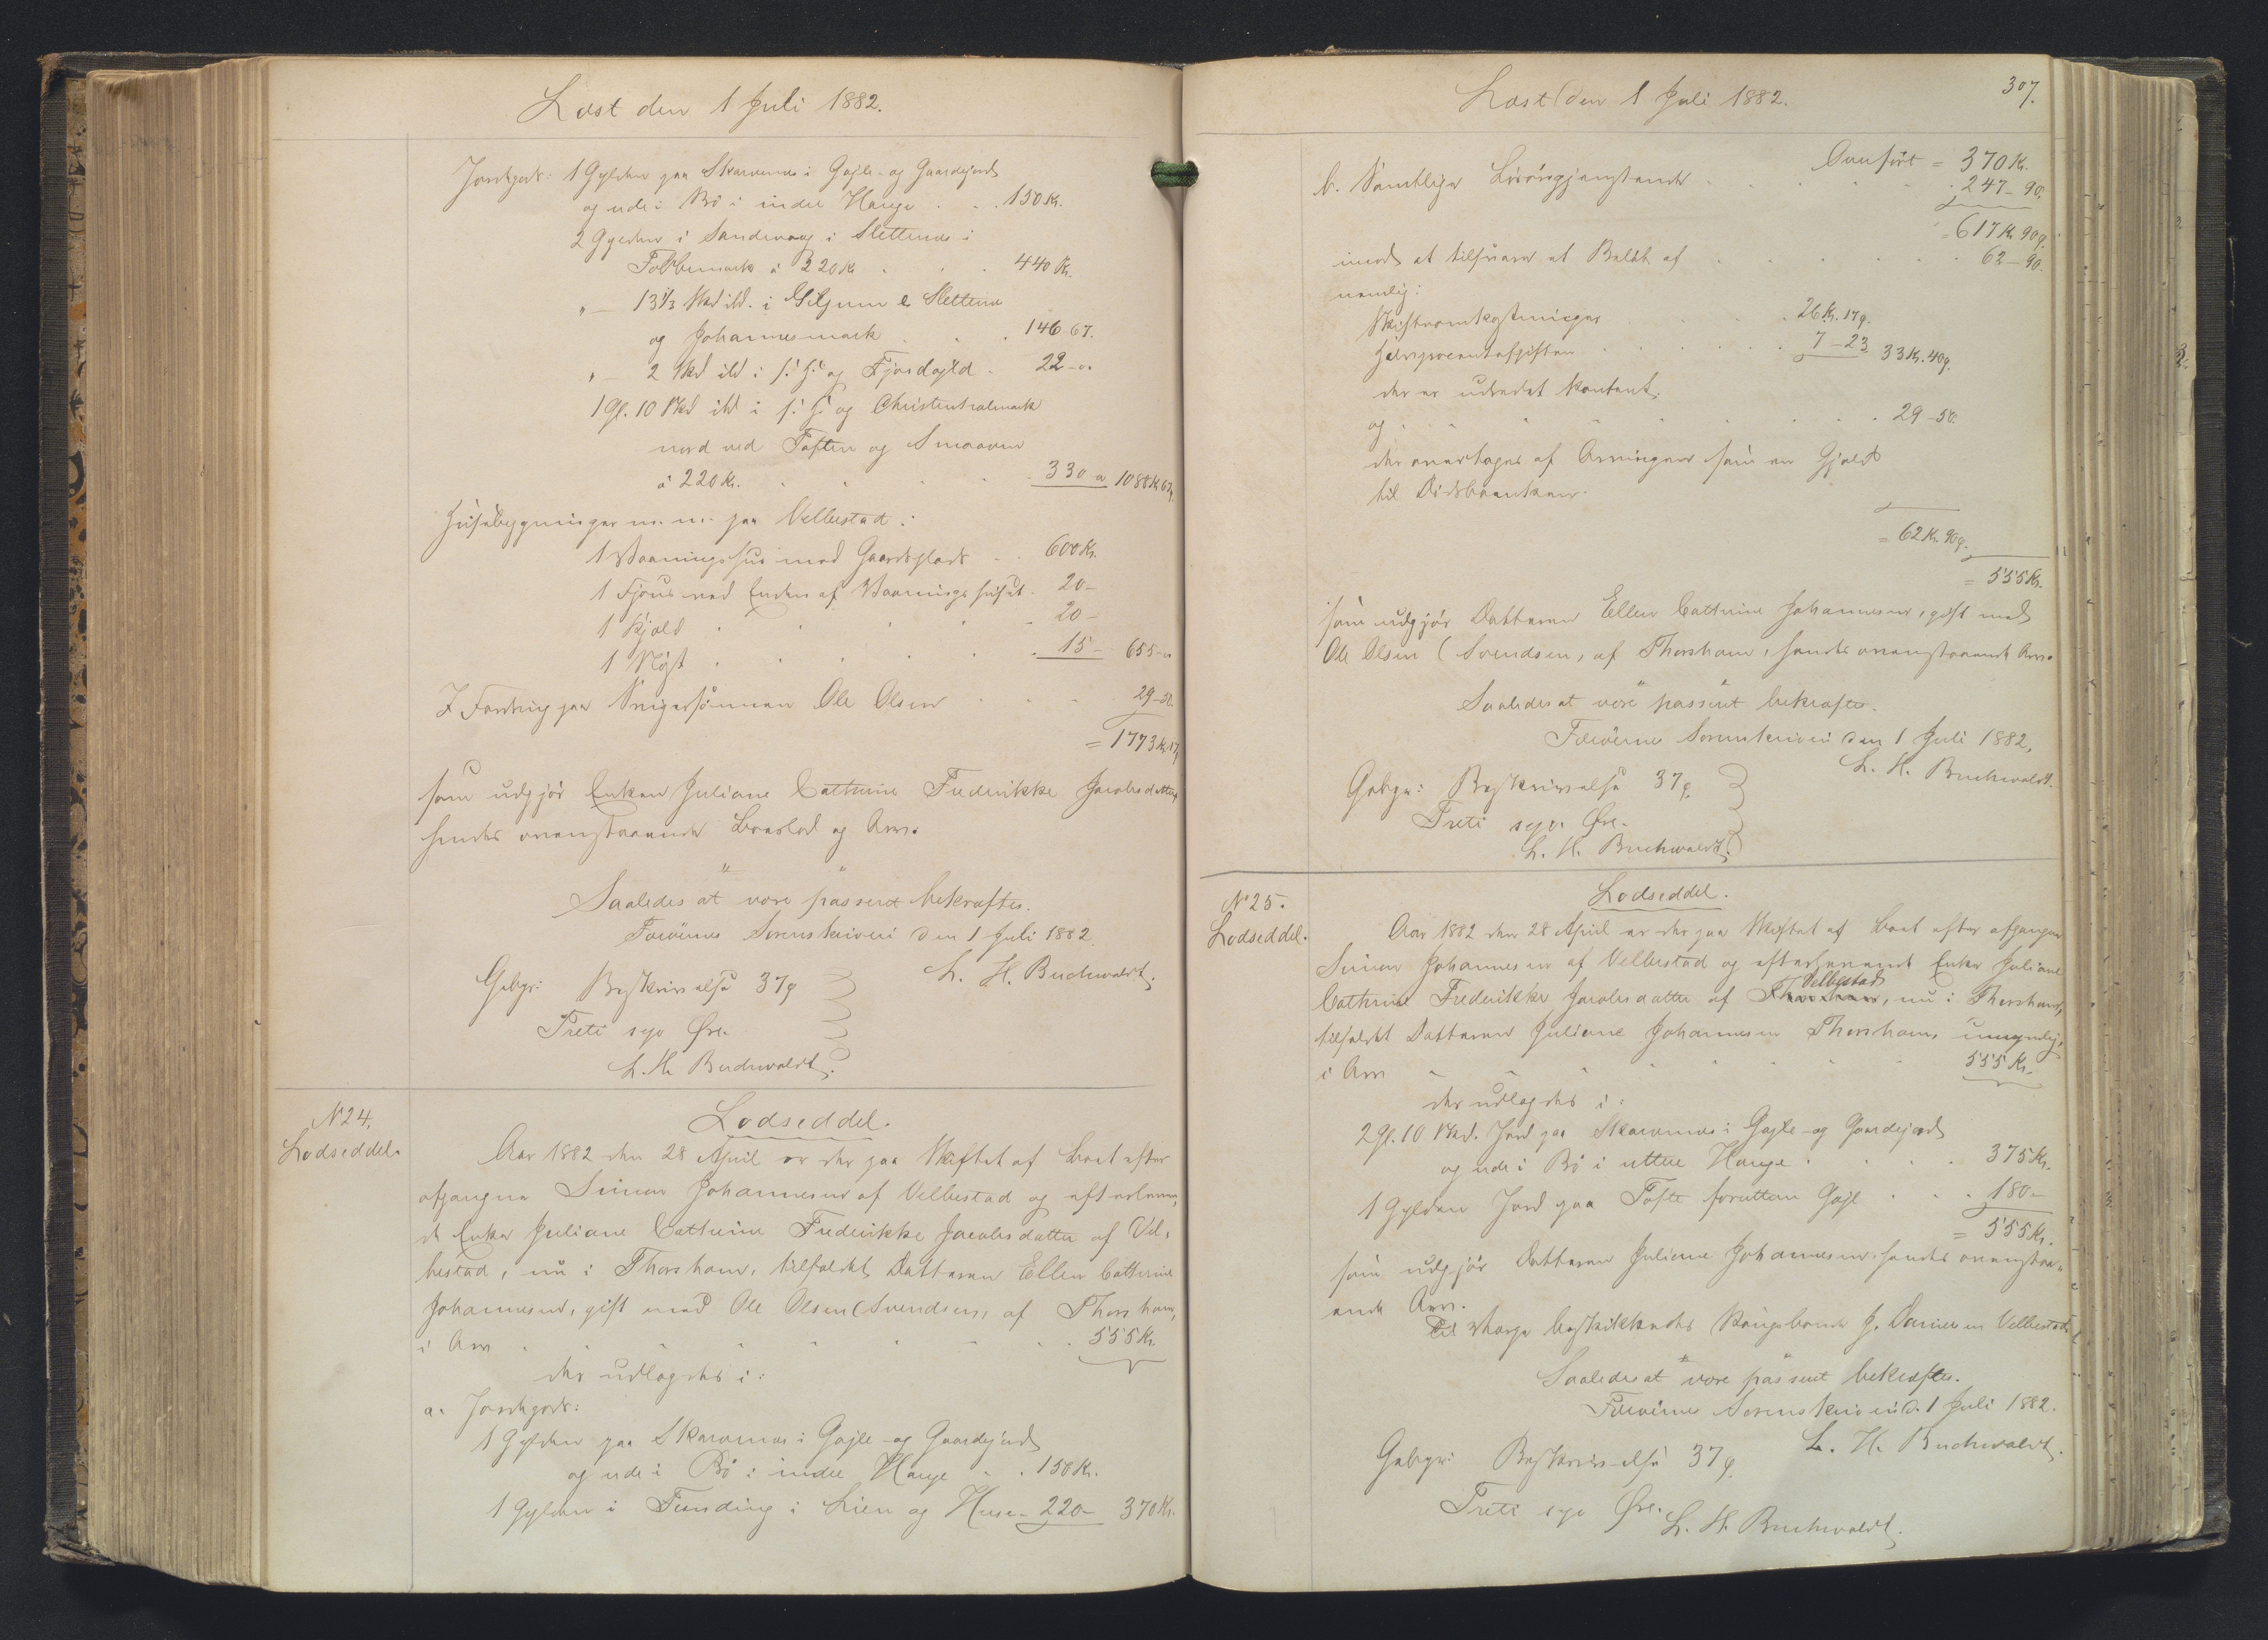 Læst den 1 Juli 1882.
Jordegods: 1 Gylden paa Skarvenes i Gøjle- og Gaardejord
og ude i Bö i indre Hauge . . 150 Kr.
2 Gylden i Sandevaag i Slettenes i
Fobbemark à 220 Kr. . . 440 Kr.
" — 13 1/3 Skd ibd. i Giljum e Slettene
og Johannesmark . . 146-67.
" — 2 Skd ibd i s: H: og Fjosdøjld . 22-"
1 Gl. 10 Skd ibd i s: H: og Christentralmark
nord ved Toften og Smaaven
à 220 Kr. . . . 330 " 1088 Kr 67
Huusbygninger m. m. paa Velbestad:
1 Vaaningshus med Gaardsplads . . 600 Kr.
1 Fjøus ved Enden af Vaaningshuset . 20-
1 Kjæld . . . . 20-
1 Nøjst . . . . 15- 655-"
I Fordring paa Svigersönnen Ole Olsen . . 29-50.
= 1773 Kr. 17
som udgjör Enken Juliane Cathrine Frederikke Jacobsdatter
hendes ovenstaaende Boeslod og Arv.
Saaledes at være passeret bekræftes.
Færöernes Sorenskriveri den 1 Juli 1882.
L. H. Buchwaldt.
Gebyr: Beskrivelse 37 ø
Treti syv Øre.
L. H. Buchwaldt.
N 24.
Lodseddel.
Lodseddel.
Aar 1882 den 28 April er der paa Skiftet af Boet efter
afgangne Simon Johannesen af Velbestad og efterleven-
de Enke Juliane Cathrine Frederikke Jacobsdatter af Vel-
bestad, nu i Thorshavn, tilfaldet Datteren Ellen Cathrine
Johannesen, gift med Ole Olsen (Svendsen, af Thorshavn,
i Arv . . . . . . 555 Kr.
der udlagdes i:
a. Jordegods:
1 Gylden paa Skarvenes i Gøjle- og Gaardejord
og ude i Bö i indre Hauge . . 150 Kr.
1 Gylden i Funding i Lien og Huse - 220- 370 Kr.
Læst den 1 Juli 1882.
307.
Overfört = 370 Kr.
b. Samtlige Lösöregjenstande . . . . 247-90.
= 617 Kr 90 ø.
imod at tilsvare et Belöb af . . . . 62-90.
nemlig:
Skifteomkostninger . . . 26 Kr. 17 ø.
Halvprocentafgiften . . . 7-23 33 Kr. 40 ø.
der er udredet kontant,
og . . . . . . 29-50.
der overtages af Arvingen som en Gjæld
til Dödsboet
= 62 Kr. 90 ø.
= 555 Kr.
som udgjör Datteren Ellen Cathrine Johannesen, gift med
Ole Olsen (Svendsen, af Thorshavn, hendes ovenstaaende Arv.
Saaledes at være passeret bekræftes.
Færöernes Sorenskriveri den 1 Juli 1882.
L. H. Buchwaldt.
Gebyr: Beskrivelse 37 ø
Treti syv Øre.
L. H. Buchwaldt.
N 25.
Lodseddel.
Lodseddel.
Aar 1882 den 28 April er der paa Skiftet af Boet efter afgangne
Simon Johannesen af Velbestad og efterlevende Enke Juliane
Velbestad
Cathrine Frederikke Jacobsdatter af Thorshavn, nu i Thorshavn,
tilfaldet Datteren Juliane Johannesen Thorshavn, umyndig,
i Arv . . . . . . 555 Kr.
der udlagdes i:
2 Gl. 10 Skd. Jord paa Skarvenes i Gøjle- og Gaardejord
og ude i Bö i uttere Hauge . . . 375 Kr.
1 Gylden Jord paa Tofte foruttan Gøjl . . . 180-
= 555 Kr.
som udgjör Datteren Juliane Johannesen hendes ovenstaa-
ende Arv.
Til Værge beskikkedes Kongsbonde J. Danielsen Velbestad
Saaledes at være passeret bekræftes.
Færöernes Sorenskriveri d. 1 Juli 1882.
L. H. Buchwaldt.
Gebyr: Beskrivelse 37 ø
Treti syv Øre.
L. H. Buchwaldt.